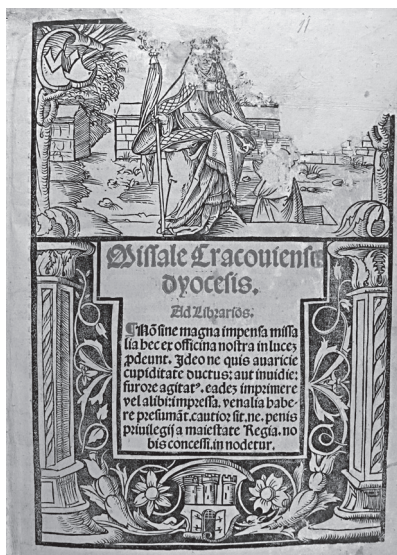 11
Missale Cracoviensis
dyocesis.
Ad Librarios.
¶Nō sine magna impensa missa
lia hec ex officina nostra in lucez
ꝓdeunt. Ideo ne quis avaricie
cupiditate ductus: aut invidie:
furore agitatꝰ. eadez imprimere
vel alibi: impressa. venalia habe-
re presumāt. cautior sit. ne. penis
privilegij a maiestate Regia. no
bis concessi. in nodetur.